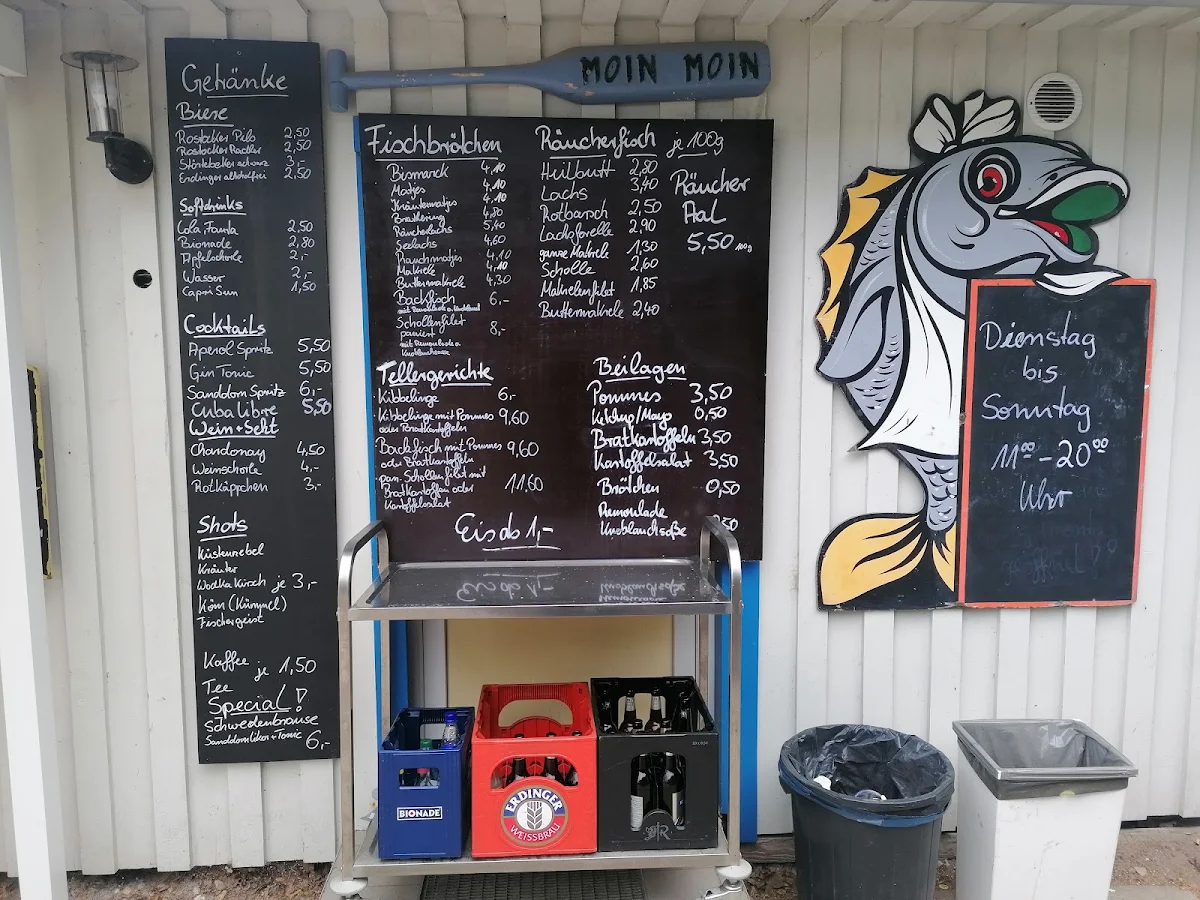 Getränke
Biere
Rostocker Pils 2,50
Rostocker Radler 2,50
Störtebeker schwarz 3,-
Erdinger alkoholfrei 2,50
Softdrinks
Cola, Fanta 2,50
Bionade 2,80
Apfelschorle 2,-
Wasser 2,-
Capri Sun 1,50
Cocktails
Aperol Spritz 5,50
Gin Tonic 5,50
Sanddorn Spritz 6,-
Cuba Libre 5,50
Wein + Sekt
Chardonay 4,50
Weinschorle 4,-
Rotkäppchen 3,-
Shots
Küstennebel
Kräuter
Wodka Kirsch je 3,-
Köm (Kümmel)
Fischergeist
Kaffee je 1,50
Tee
Special!
Schwedenbrause
Sanddornlikör + Tonic 6,-
MOIN MOIN
Fischbrötchen
Bismarck 4,10
Matjes 4,10
Kräutermatjes 4,10
Brathering 4,80
Räucherlachs 5,40
Seelachs 4,60
Rauchmatjes 4,10
Makrele 4,10
Buttermakrele 4,30
Backfisch 6,-
Schollenfilet 8,-
paniert
mit Remoulade o.
Knoblauchsosse
Räucherfisch je 100g
Heilbutt 2,80
Lachs 3,40
Rotbarsch 2,50
Lachsforelle 2,90
ganze Makrele 1,30
Scholle 2,60
Makrelenfilet 1,85
Buttermakrele 2,40
Räucher
Aal
5,50 100g
Tellergerichte
Kibbelinge 6,-
Kibbelinge mit Pommes 9,60
oder Bratkartoffeln
Backfisch mit Pommes 9,60
oder Bratkartoffeln
pan. Schollenfilet mit 11,60
Bratkartoffeln oder
Kartoffelsalat
Beilagen
Pommes 3,50
Ketchup/Mayo 0,50
Bratkartoffeln 3,50
Kartoffelsalat 3,50
Brötchen 0,50
Remoulade
Knoblauchsoße
Eis ab 1,-
Dienstag
bis
Sonntag
11⁰⁰-20⁰⁰
Uhr
BIONADE
ERDINGER
WEISSBRÄU